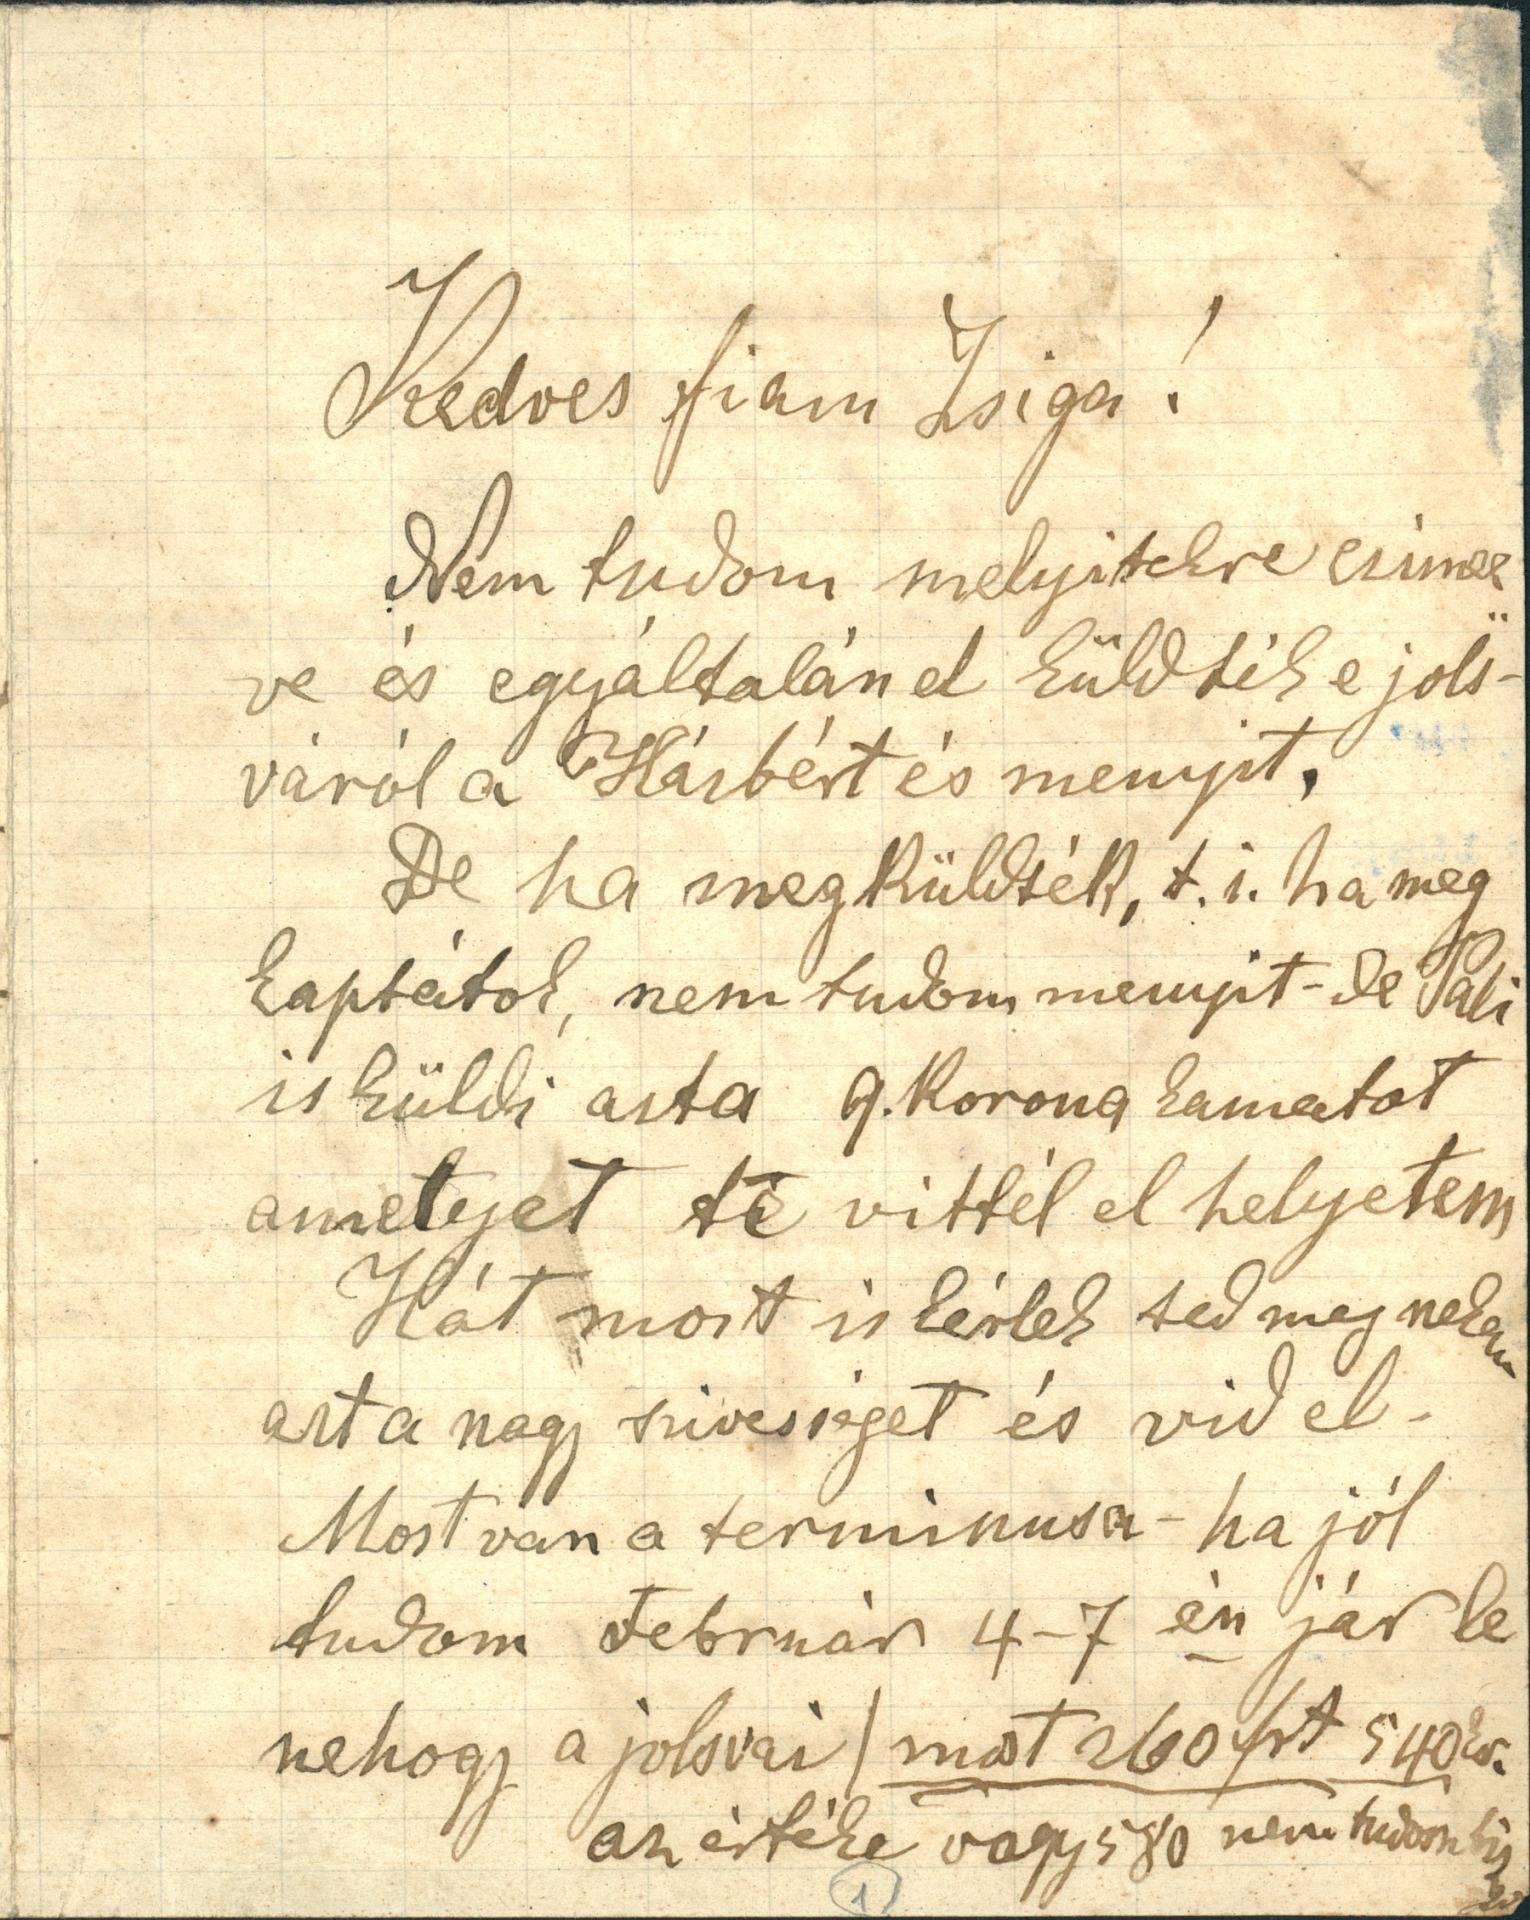 Kedves fiam Zsiga!
Nem tudom melyitekre cimez
ve és egyáltalán el küldték e jols-
váról a Házbért és menyit.
De ha megküldték, t. i. ha meg
kaptátok, nem tudom menyit - de Pali
is küldi azt a 9. Korona kamatot
amelyet te vittél el helyetem
Hát most is kérlek ted meg nekem
azt a nagy szivességet és vid el -
Most van a terminusa - ha jól
tudom Február 4-7 én jár le
nehogy a jolsvai / most 260 frt 540 kor.
az értéke vagy 580 nem tudom
1